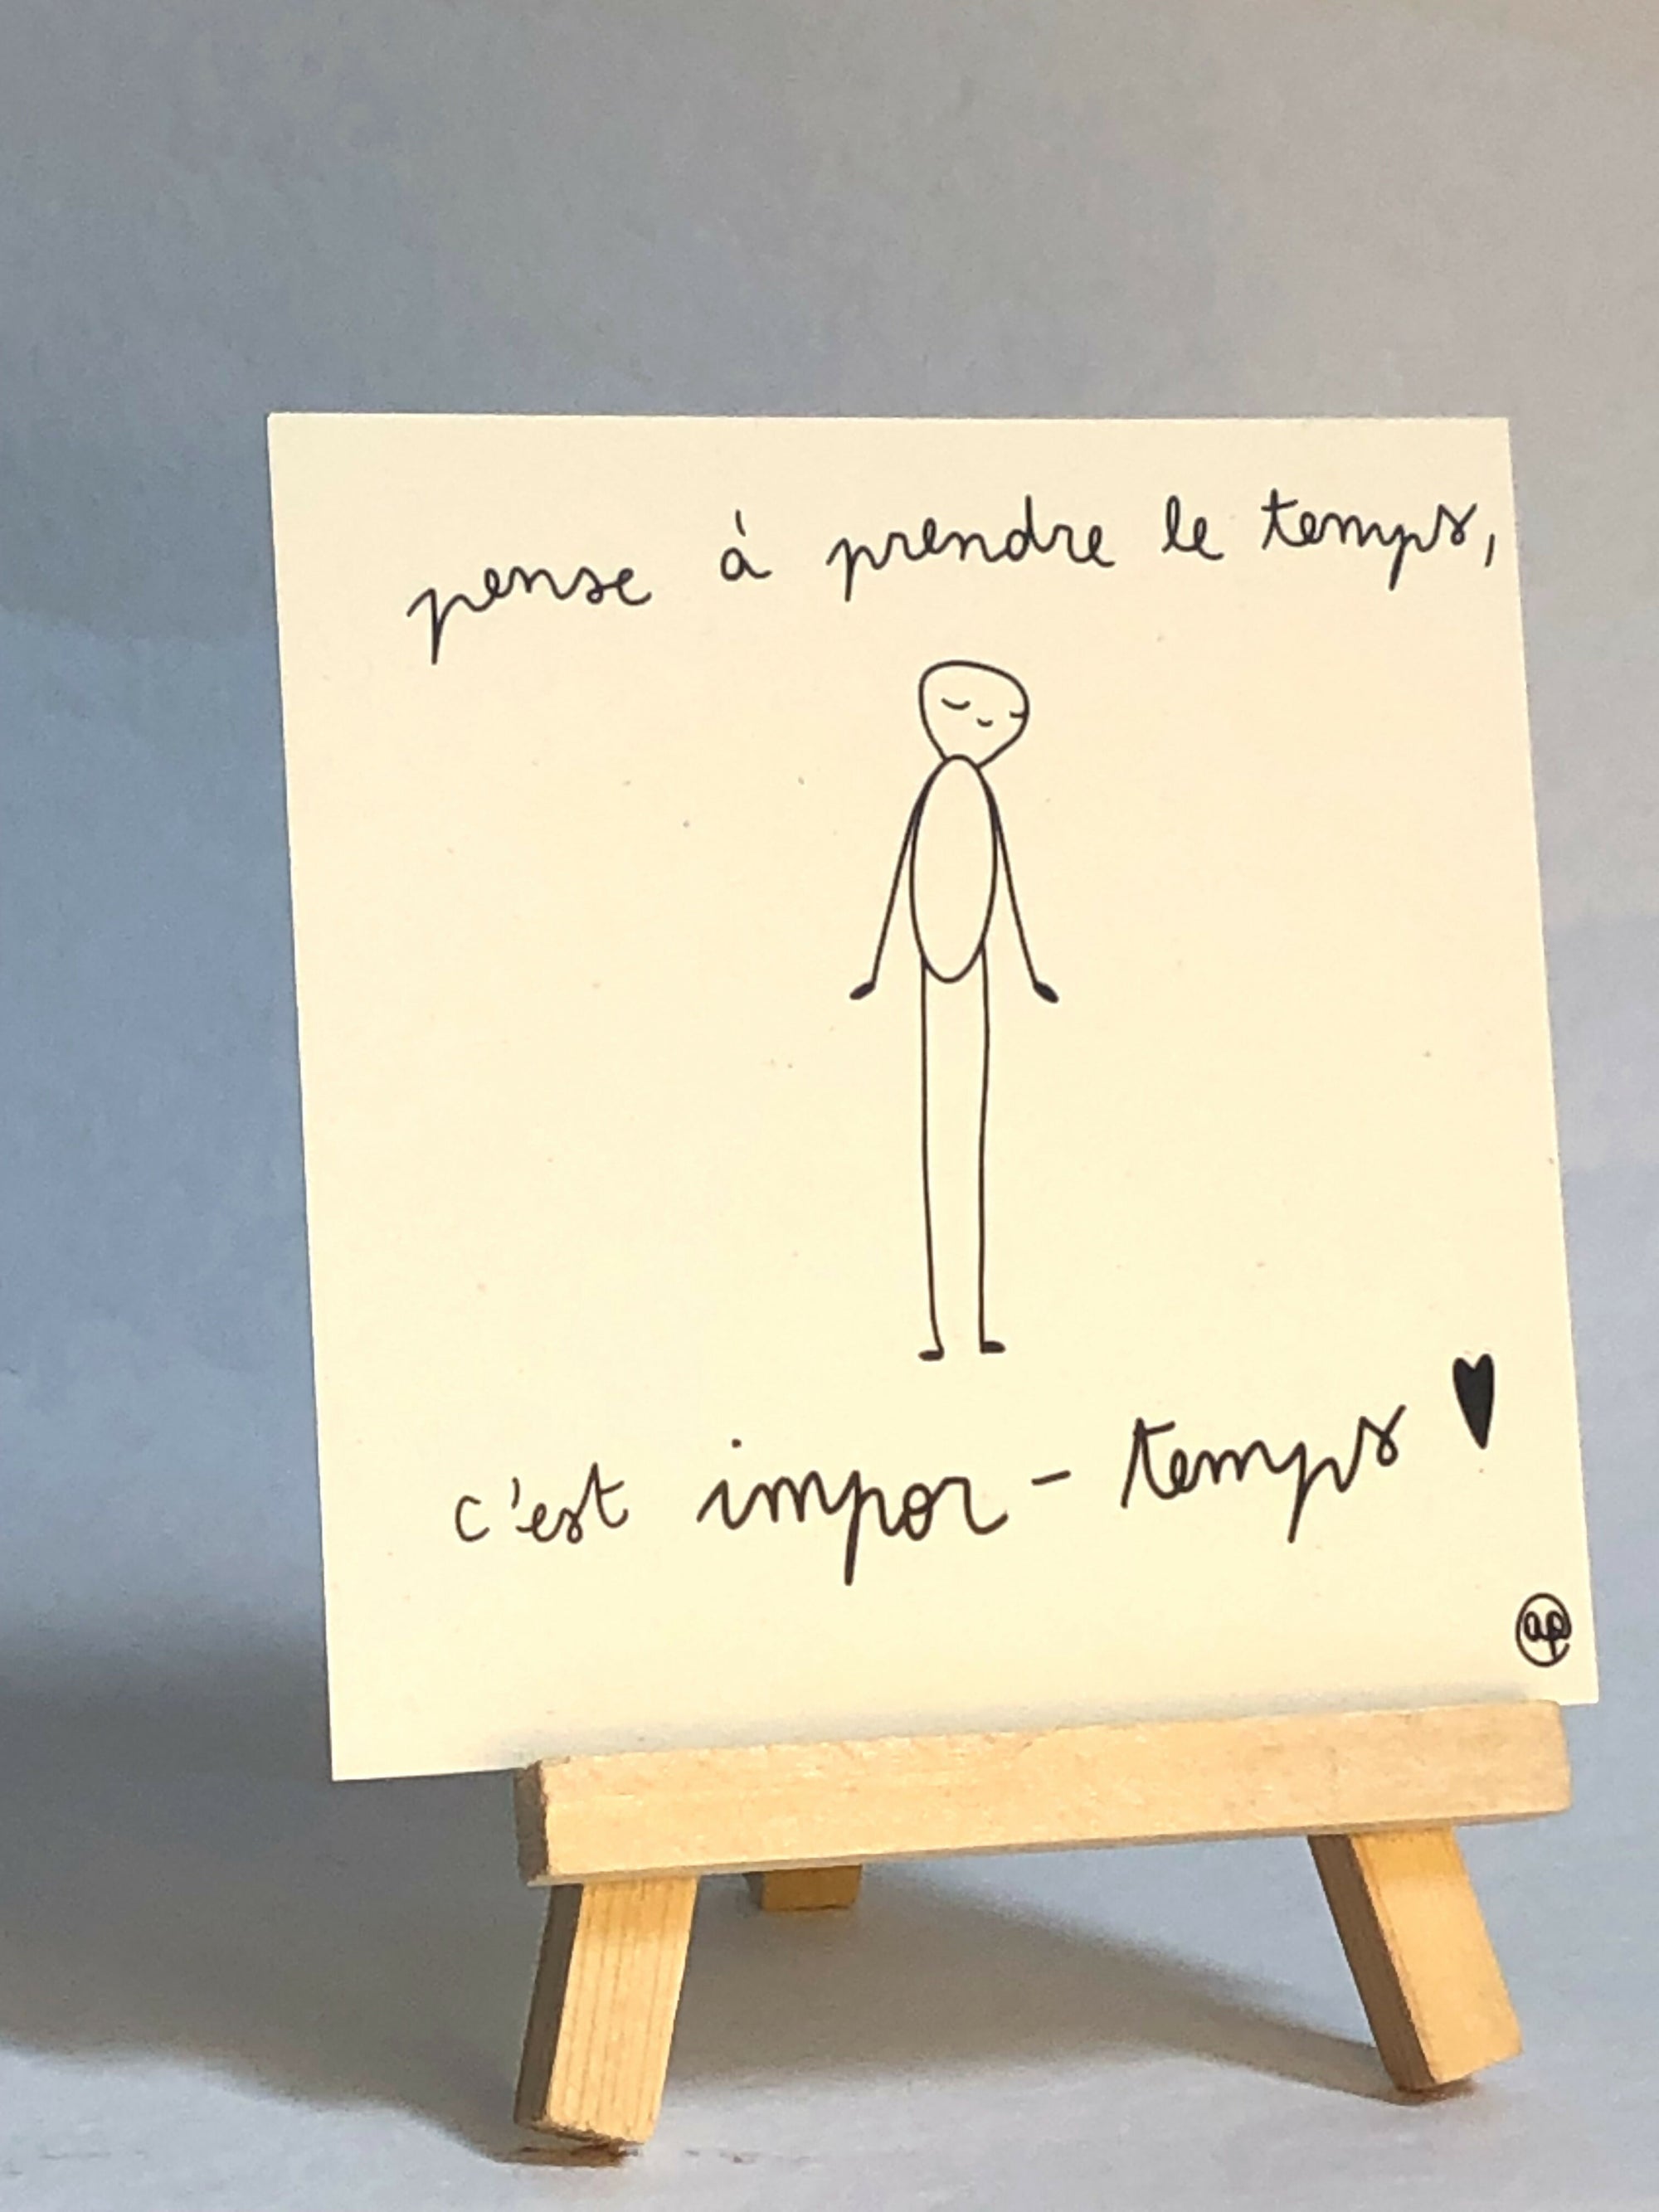 pense à prendre le temps,
c'est impor-temps
ap